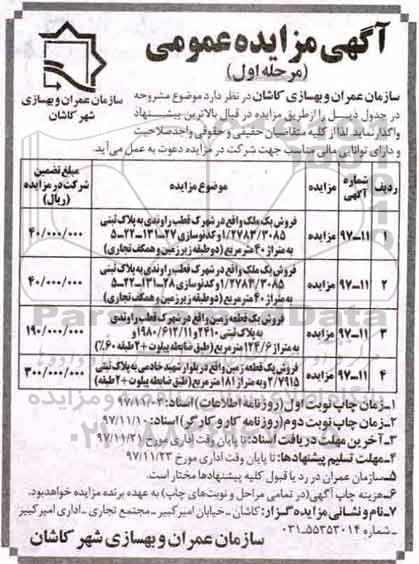 آگهی مزایده عمومی
(مرحله اول)
سازمان عمران و بهسازی
شهر کاشان
سازمان عمران و بهسازی کاشان در نظر دارد موضوع مشروحه
در جدول ذیل را از طریق مزایده در قبال بالاترین پیشنهاد
واگذار نماید. لذا از کلیه متقاضیان حقیقی و حقوقی واجد صلاحیت
و دارای توانایی مالی مناسب جهت شرکت در مزایده دعوت به عمل می آید.
ردیف شماره آگهی مزایده موضوع مزایده مبلغ تضمین شرکت در مزایده (ریال)
۱ ۹۷-۱۱ مزایده فروش یک ملک واقع در شهرک قطب راوندی به پلاک ثبتی
۱/۲۷۸۳/۳۰۸۵ و کد نوسازی ۲۷-۱۳۱-۲۲-۵
به متراژ ۴۰ مترمربع (دو طبقه زیرزمین و همکف تجاری) ۴۰/۰۰۰/۰۰۰
۲ ۹۷-۱۱ مزایده فروش یک ملک واقع در شهرک قطب راوندی به پلاک ثبتی
۱/۲۷۸۳/۳۰۸۵ و کد نوسازی ۲۸-۱۳۱-۲۲-۵
به متراژ ۴۰ مترمربع (دو طبقه زیرزمین و همکف تجاری) ۴۰/۰۰۰/۰۰۰
۳ ۹۷-۱۱ مزایده فروش یک قطعه زمین واقع در شهرک قطب راوندی
به پلاک ثبتی ۲۴۱۰ و ۱۹۸۰/۶۱۲/۱۱
به متراژ ۱۲۴/۶ مترمربع (طبق ضابطه پیلوت +۲ طبقه ۶۰٪) ۱۹۰/۰۰۰/۰۰۰
۴ ۹۷-۱۱ مزایده فروش یک قطعه زمین واقع در بلوار شهید خادمی به پلاک ثبتی
۲/۷۹۱۵ و به متراژ ۱۸۱ مترمربع (طبق ضابطه پیلوت +۲ طبقه) ۳۰۰/۰۰۰/۰۰۰
۱-زمان چاپ نوبت اول (روزنامه اطلاعات) اسناد: ۹۷/۱۱/۰۳
۲-زمان چاپ نوبت دوم (روزنامه کار و کارگر) اسناد: ۹۷/۱۱/۱۰
۳-آخرین مهلت دریافت اسناد: تا پایان وقت اداری مورخ ۹۷/۱۱/۲۱
۴-مهلت تسلیم پیشنهادها: تا پایان وقت اداری مورخ ۹۷/۱۱/۲۳
۵-سازمان عمران در رد یا قبول کلیه پیشنهادها مختار است.
۶-هزینه چاپ آگهی (در تمامی مراحل و نوبت های چاپ) به عهده برنده مزایده خواهد بود.
۷-نام و نشانی مزایده گزار: کاشان - خیابان امیرکبیر - مجتمع تجاری - اداری امیرکبیر
- شماره ۵۵۳۵۳۰۱۴-۰۳۱
سازمان عمران و بهسازی شهر کاشان